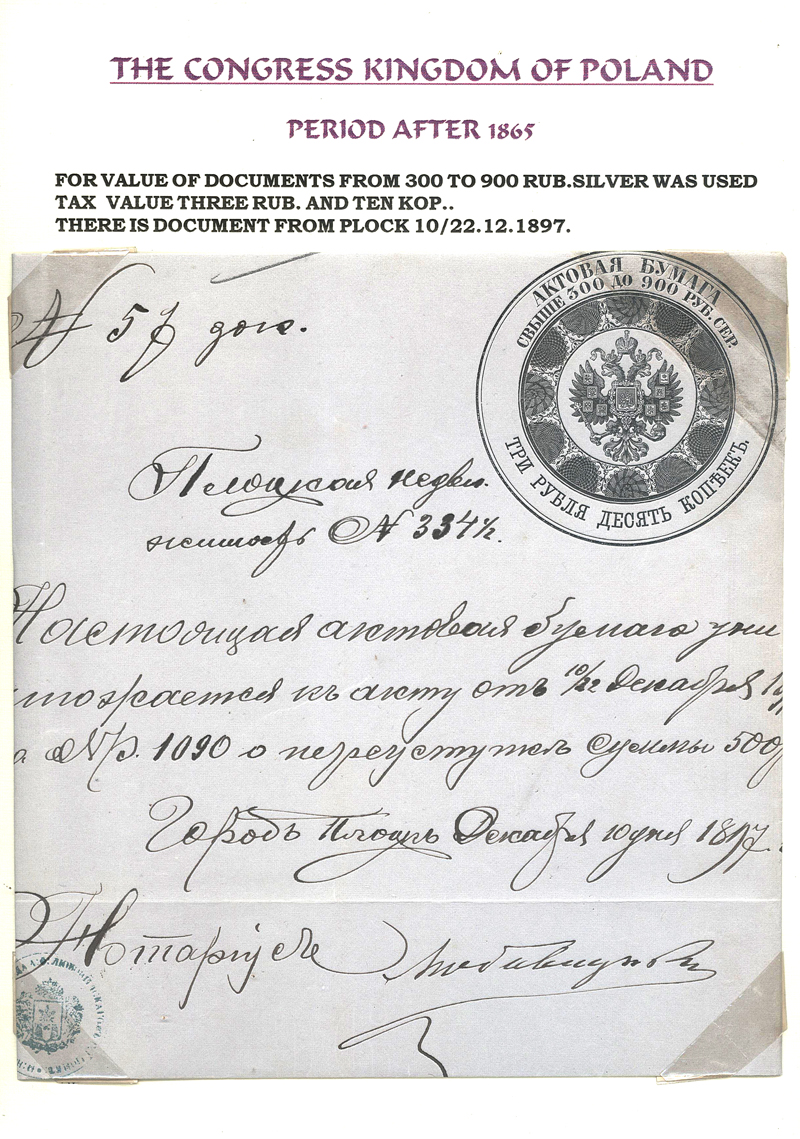 THE CONGRESS KINGDOM OF POLAND
PERIOD AFTER 1865
FOR VALUE OF DOCUMENTS FROM 300 TO 900 RUB.SILVER WAS USED
TAX VALUE THREE RUB. AND TEN KOP..
THERE IS DOCUMENT FROM PLOCK 10/22.12.1897.
АКТОВАЯ БУМАГА
СВЫШЕ 300 ДО 900 РУБ. СЕР.
ТРИ РУБЛЯ ДЕСЯТЬ КОПѢЕКЪ.
N 57 дог.
Плоцкая недви.
жимость N 334½.
Настоящая актовая бумага уни
тожается къ акту отъ 10/22 Декабря
Nр. 1090 о переуступкѣ суммы 500
Городъ Плоцкъ Декабря 1897
Нотаріусъ